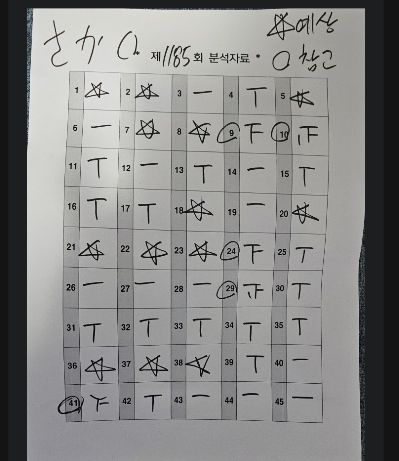 さか
☆예상
제1185회 분석자료 *
○ 참고
1 ☆ 2 ☆ 3 一 4 T 5 ☆
6 一 7 ☆ 8 ☆ 9 F 10 F
11 T 12 一 13 T 14 一 15 T
16 T 17 T 18 ☆ 19 一 20 ☆
21 ☆ 22 ☆ 23 ☆ 24 F 25 T
26 一 27 一 28 一 29 F 30 T
31 T 32 T 33 T 34 T 35 T
36 ☆ 37 ☆ 38 ☆ 39 T 40 一
41 F 42 T 43 一 44 一 45 一